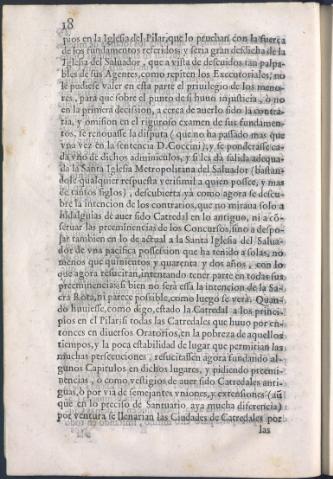 18
pios en la Iglesia del Pilar, que lo prueban con la fuerça
de los fundamentos referidos; y seria gran desdicha de la
Iglesia del Salvador, que a vista de descuidos tan palpa-
bles de sus Agentes, como repiten los Executoriales, no
le pudiese valer en esta parte el privilegio de los meno-
res, para que sobre el punto de si huuo injusticia, ò no
en la primera decision, a cerca de auerlo sido la contra-
ria, y omision en el riguroso examen de sus fundamen-
tos, se renouasse la disputa (que no ha passado mas que
vna vez en la sentencia D. Coccini); y se ponderasse ca-
da vno de dichos adminiculos, y si les dà salida adequa-
da la Santa Iglesia Metropolitana del Saluador (bastan-
dole qualquier respuesta verisimil a quien possee, y mas
de tantos siglos), descubierta yà como agora se descu-
bre la intencion de los contrarios, que no miraua solo a
hidalguias de auer sido Catredal en lo antiguo, ni a cõ-
seruar las preeminencias de los Concursos, sino a despo-
jar tambien en lo de actual a la Santa Iglesia del Salua-
dor de vna pacifica possession que ha tenido a solas, no
menos que quinientos y quarenta y dos años, con lo
que agora resucitan, intentando tener parte en todas sus
preeminencias, si bien no serà essa la intencion de la Sa-
cra Rota, ni parece possible, como luego se verà. Quan-
do huuiesse, como digo, estado la Catredal a los princi-
pios en el Pilar, si todas las Catredales que huuo por en-
tonces en diuersos Oratorios, en la pobreza de aquellos
tiempos, y la poca estabilidad de lugar que permitian las
muchas persecuciones, resucitassen agora fundando al-
gunos Capitulos en dichos lugares, y pidiendo preemi-
nencias, ò como vestigios de auer sido Catredales anti-
guas, ò por via de semejantes vniones, y extensiones (aũ
que en lo preciso de Santuario aya mucha diferencia)
por ventura se llenarian las Ciudades de Catredales por
las